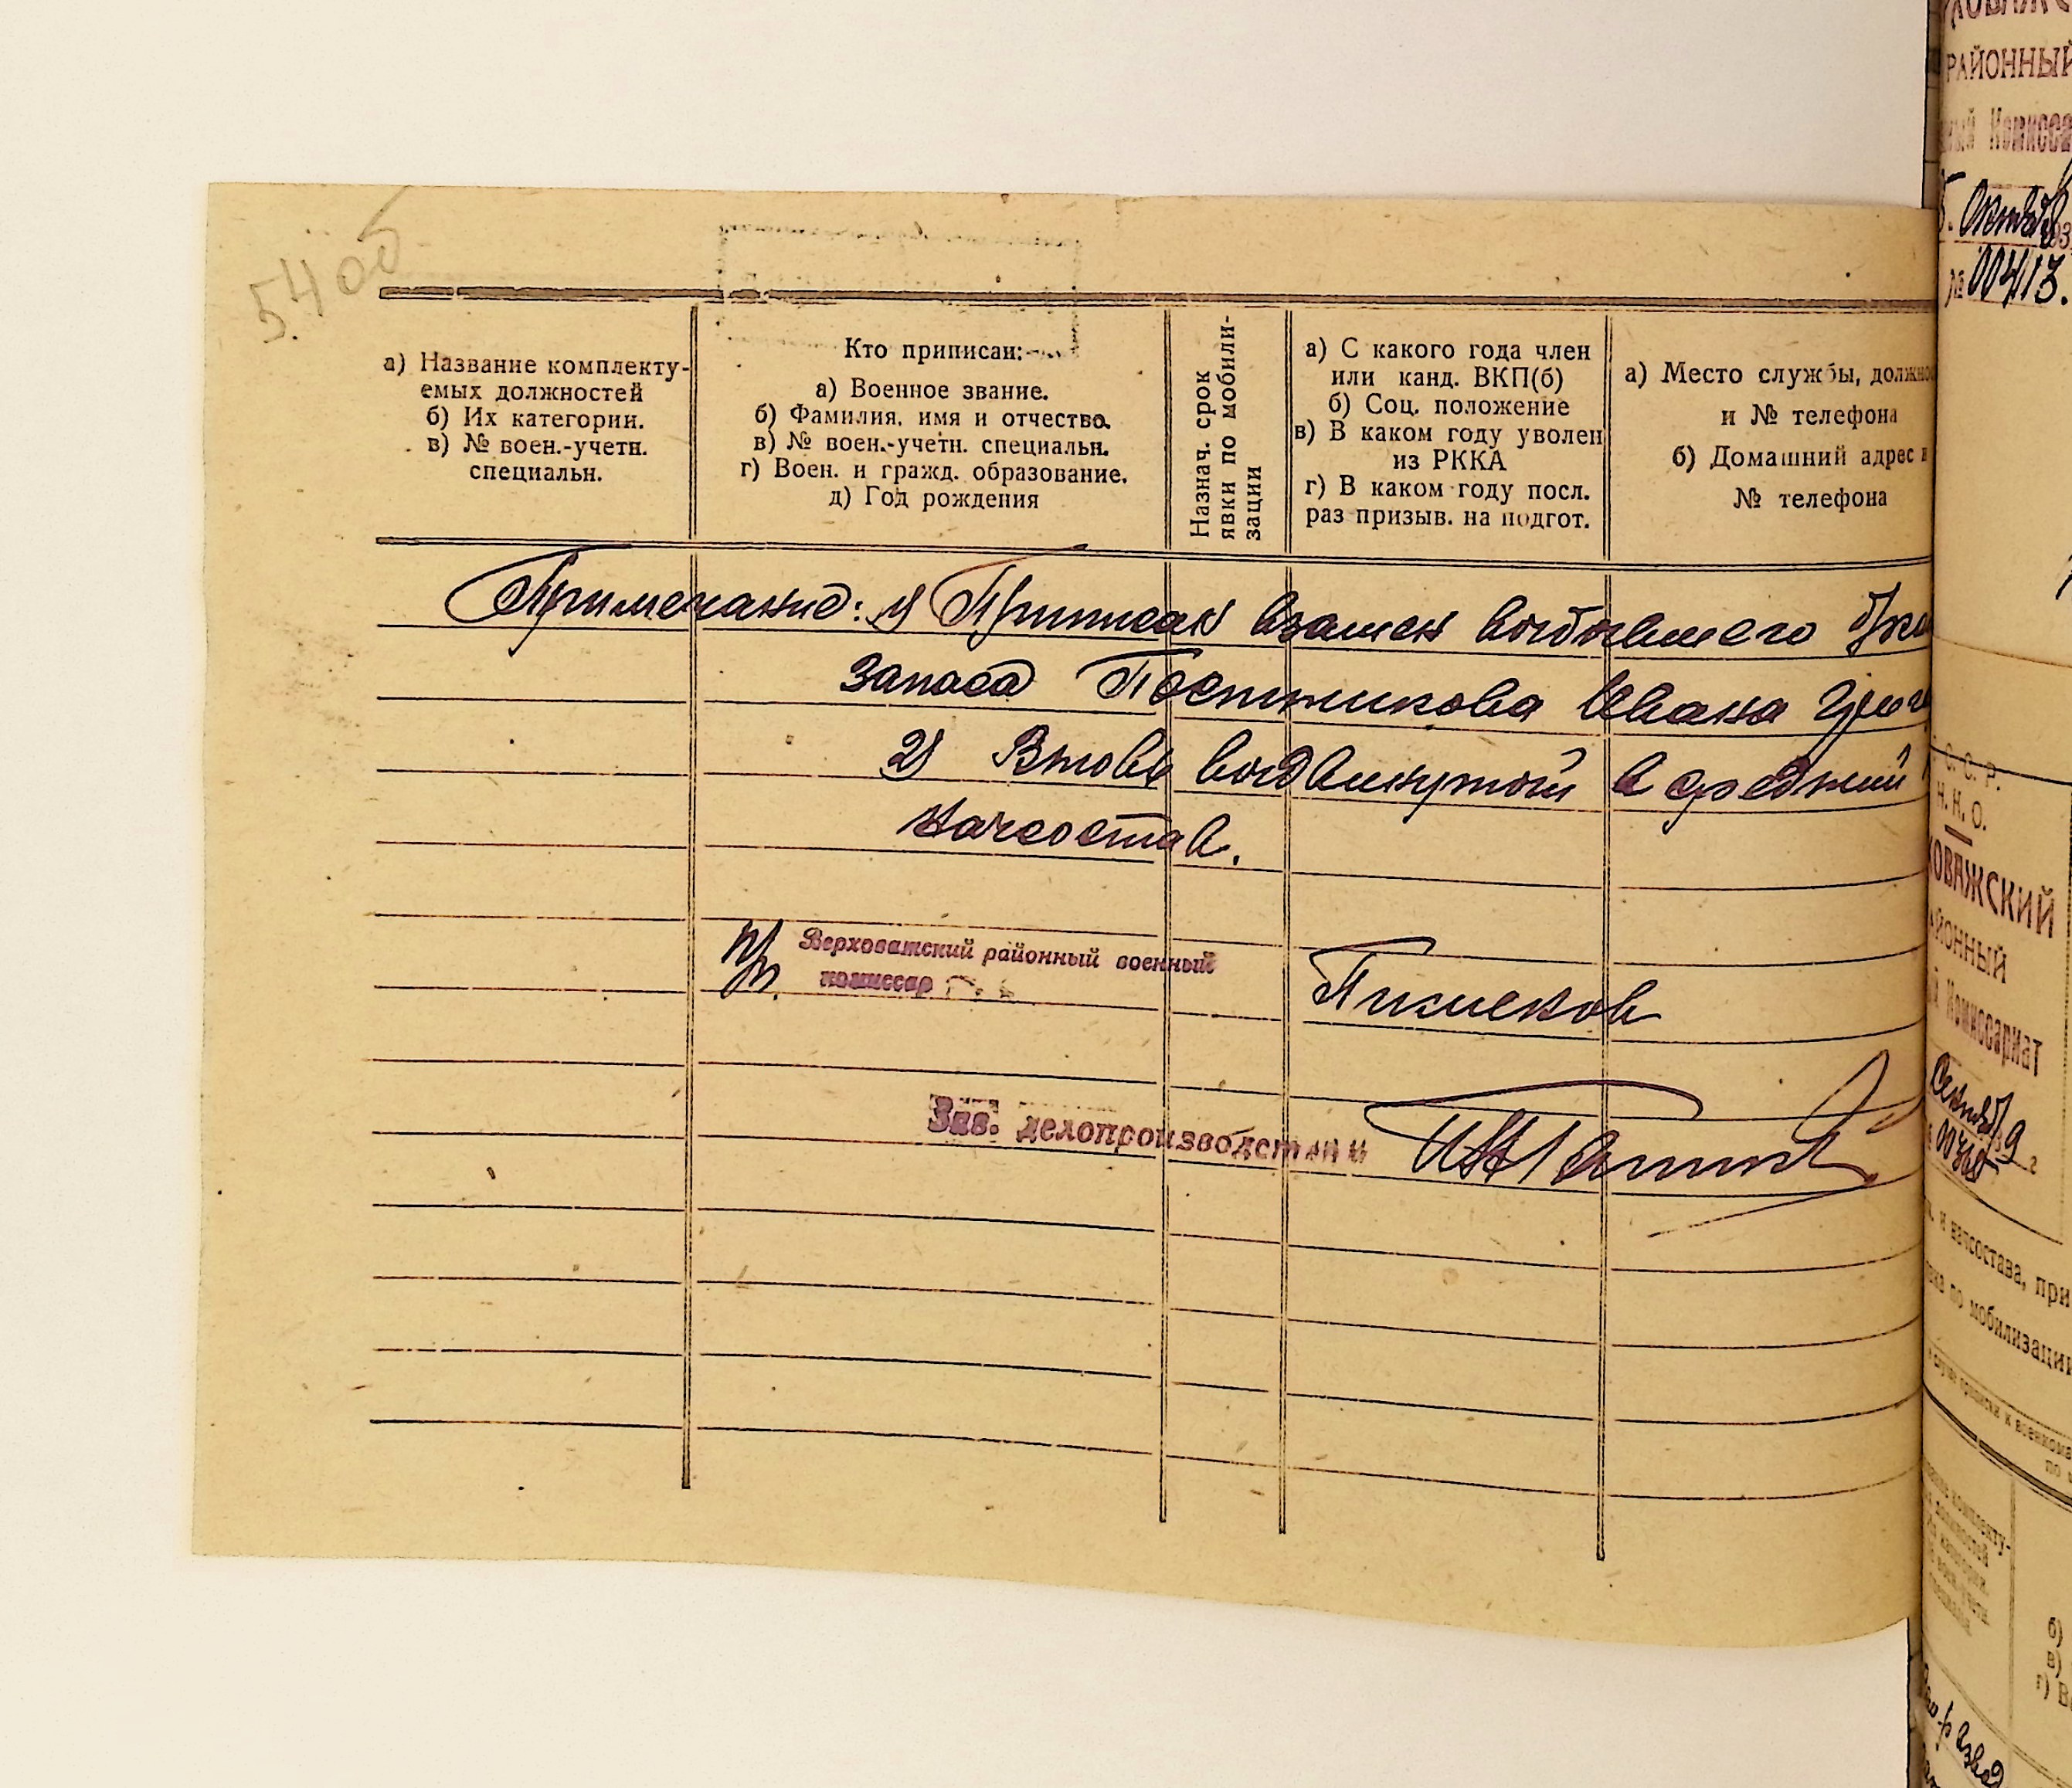 5.40об
а) Название комплекту-
емых должностей
б) Их категории.
в) № воен.-учетн.
специальн.
Кто приписан:
а) Военное звание.
б) Фамилия, имя и отчество.
в) № воен.-учетн. специальн.
г) Воен. и гражд. образование.
д) Год рождения
Назнач. срок
явки по мобили-
зации
а) С какого года член
или канд. ВКП(б)
б) Соц. положение
в) В каком году уволен
из РККА
г) В каком году посл.
раз призыв. на подгот.
а) Место службы, должно
и № телефона
б) Домашний адрес и
№ телефона
Примечание: 1) Приписан взамен выбывшего
запаса Постникова Ивана Григ
2) Вновь выдвинутый в средний
начсостав.
п/п. Верховажский районный военный
комиссар Пименов
Зав. делопроизводством
РАЙОННЫЙ
Октября
№ 00413.
С. С. Р.
Н. К. О.
ОВАЖСКИЙ
РАЙОННЫЙ
Комиссариат
и начсостава, при
по мобилизации